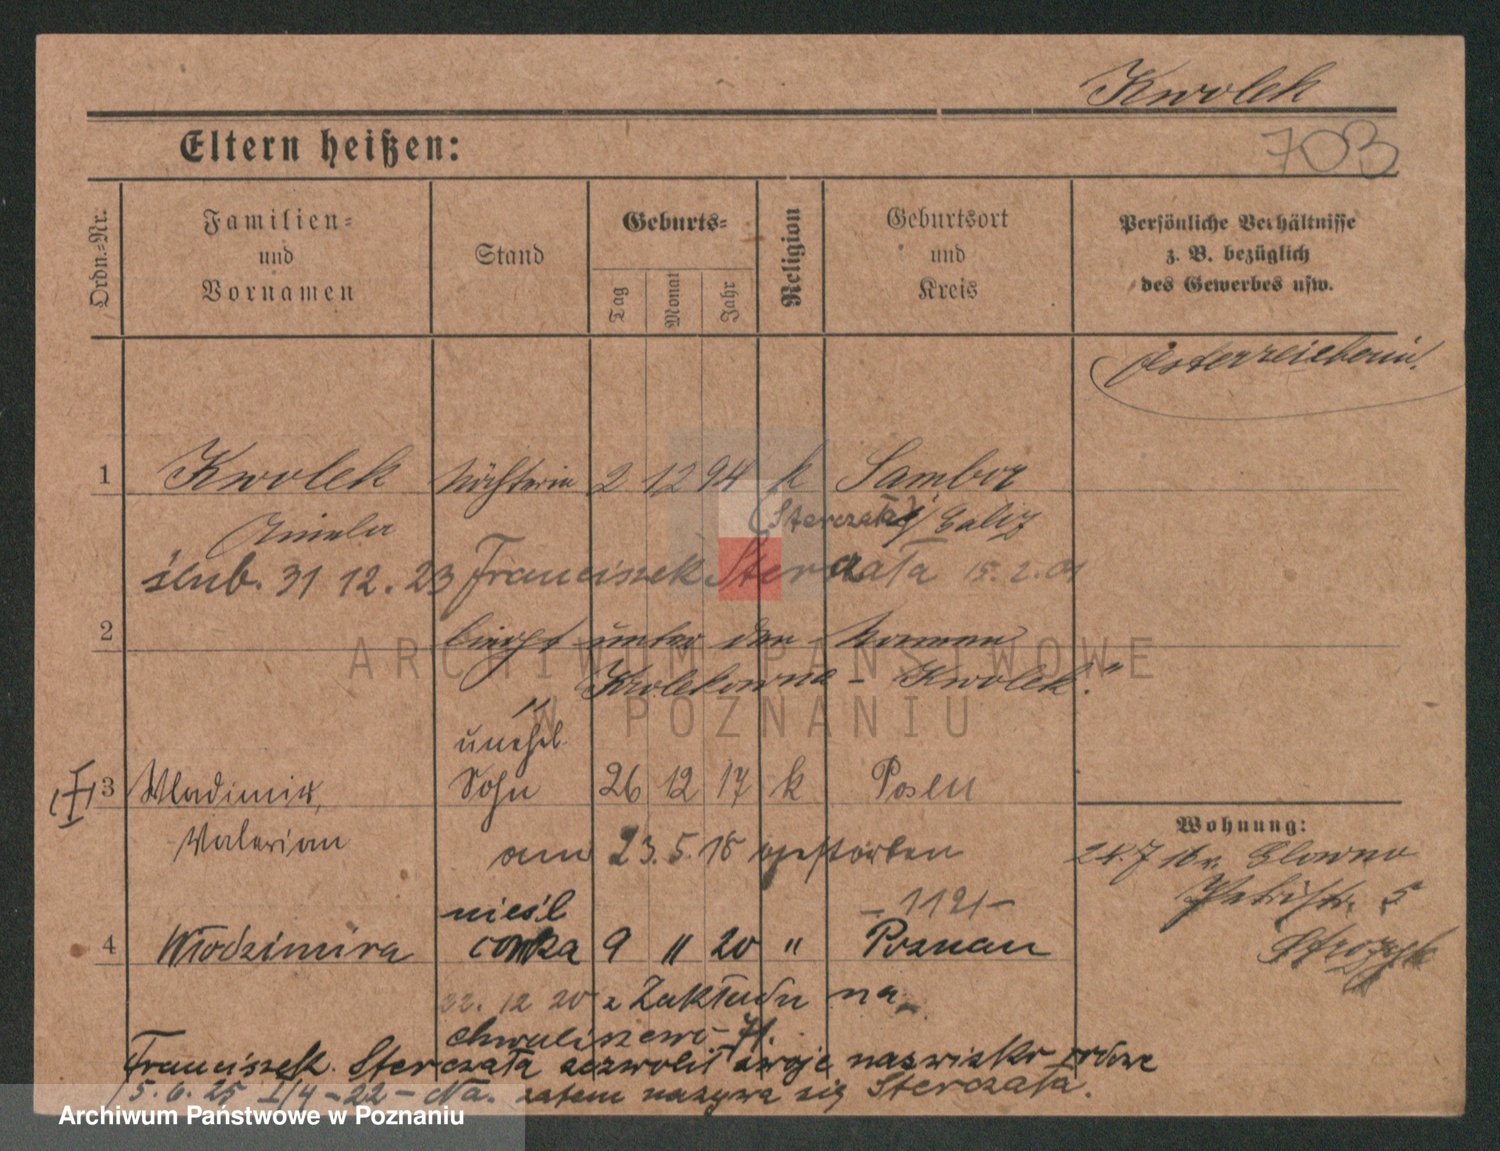 Kwolek
703
Eltern heißen:
Ordn.-Nr.
Familien- und Vornamen
Stand
Geburts-
Tag
Monat
Jahr
Religion
Geburtsort und Kreis
Persönliche Verhältnisse z. B. bezüglich des Gewerbes usw.
Österreicherin.
1 Kwolek 2 12 94 k Sambor
Aniela (Sterczała) Galiz
ślub. 31 12. 23 Franciszek Sterczała 15. 2. 01
2 unter den Namen
"Krolekowna - Kwolek."
unehel.
3 Wladimir, Sohn 26 12 17 k Posen
Valerian am 23. 5. 18 gestorben
Wohnung:
24. 7 18 v. Glowno
5
nieśl - 1121 -
4 Włodzimira córka 9 " 20 " Poznań
22. 12 20 z Zakładu na
Chwaliszewo 71.
Franciszek Sterczała zezwolił swoje nazwisko
5. 6. 25 I/4 - 22 - Na. zatem nazywa się Sterczała.
ARCHIWUM PAŃSTWOWE
W POZNANIU
Archiwum Państwowe w Poznaniu